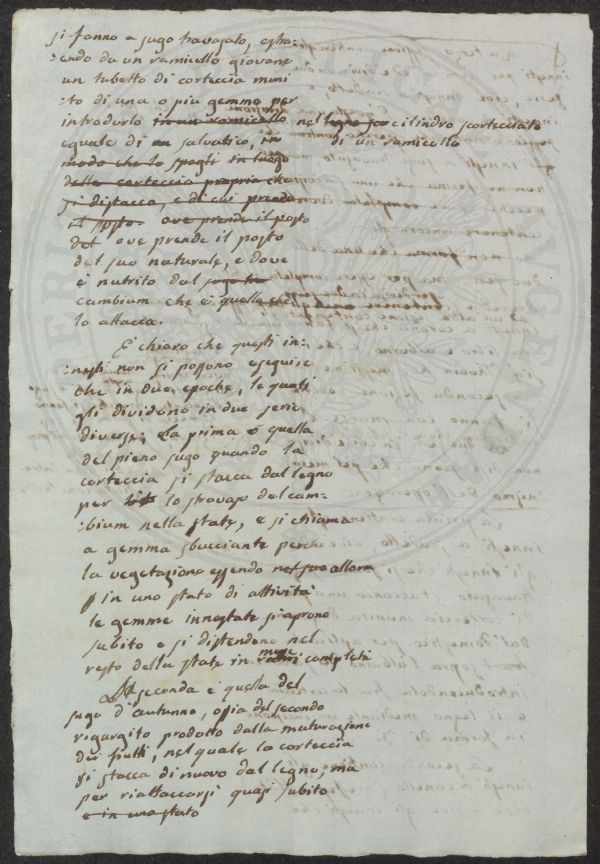 si fanno a sugo travasato, estra:
:endo da un ramicello giovane
un tubetto di corteccia muni
:to di una o piu gemme per
introdurlo in un ramicello nel cilindro scortecciato
eguale di un salvatico, in di un ramicello
modo che lo spogli in luogo
della corteccia propria che
si distacca, e di cui prende
il posto ove prende il posto
del ove prende il posto
del suo naturale, e dove
è nutrito dal
cambium che è quello che
lo attacca.
E' chiaro che questi in:
:nesti non si possono eseguire
che in due epoche, le quali
gli dividono in due serie
diverse; La prima è quella
del pieno sugo quando la
corteccia si stacca dal legno
per lo stravaso del cam:
:bium nella state, e si chiama
a gemma sbucciante perche
la vegetazione essendo nel suo allora
in uno stato di attività
le gemme innestate si aprono
subito e si distendono nel
resto della state in rami completi
La seconda è quella del
sugo d'autunno, ossia del secondo
rigurgito prodotto dalla maturazione
dei frutti, nel quale la corteccia
si stacca di nuovo dal legno, ma
per riattaccarsi quasi subito
e in uno stato